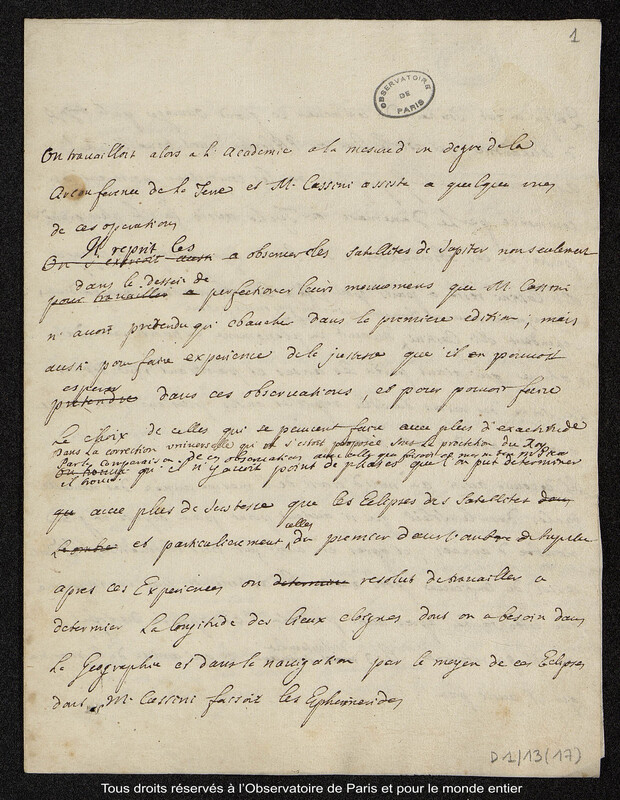 1
OBSERVATOIRE DE PARIS
On travailloit alors a l'Academie a la mesure d'un degre de la
circonference de la Terre et Mr. Cassini assista a quelques unes
de ces operations
Il reprit les
On s' aussi a observer les satellites de Jupiter non seulement
dans le dessein de
pour travailler a perfectioner leurs mouvemens que Mr. Cassini
n'avoit pretendu qu'ebaucher dans la premiere edition; mais
aussi pour faire experience de la justesse que il en pouvoit
esperer
pretendre dans ces observations, et pour pouvoir faire
le choix de celles qui se peuvent faire avec plus d'exactitude
dans la correction universelle qui s'estoit proposée sous la protection du Roy
Par la comparaison de ces observations avec celles que faisoit en mesme tem Mr.
On trouva qu'il n'y avoit point de phases que l'on put determiner
il trouva
qu avec plus de justesse que les Eclipses des satellites dans
celles
l'ombre et particulierement du premier dans l'ombre de Jupiter
apres ces Experiences on determina resolut de travailler a
determier la longitude des lieux eloignes dont on a besoin dans
la Geographie et dans la navigation par le moyen de ces Eclipses
dont Mr. Cassini faisoit les Ephemerides
D1/13(17)
Tous droits réservés à l'Observatoire de Paris et pour le monde entier